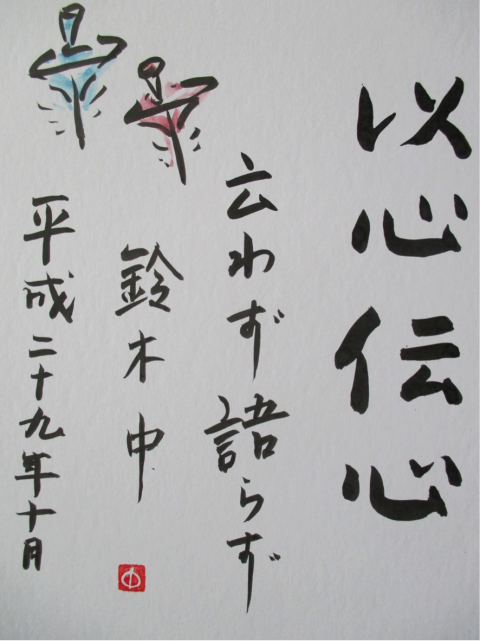 以心伝心
云わず語らず
鈴木中
平成二十九年十月